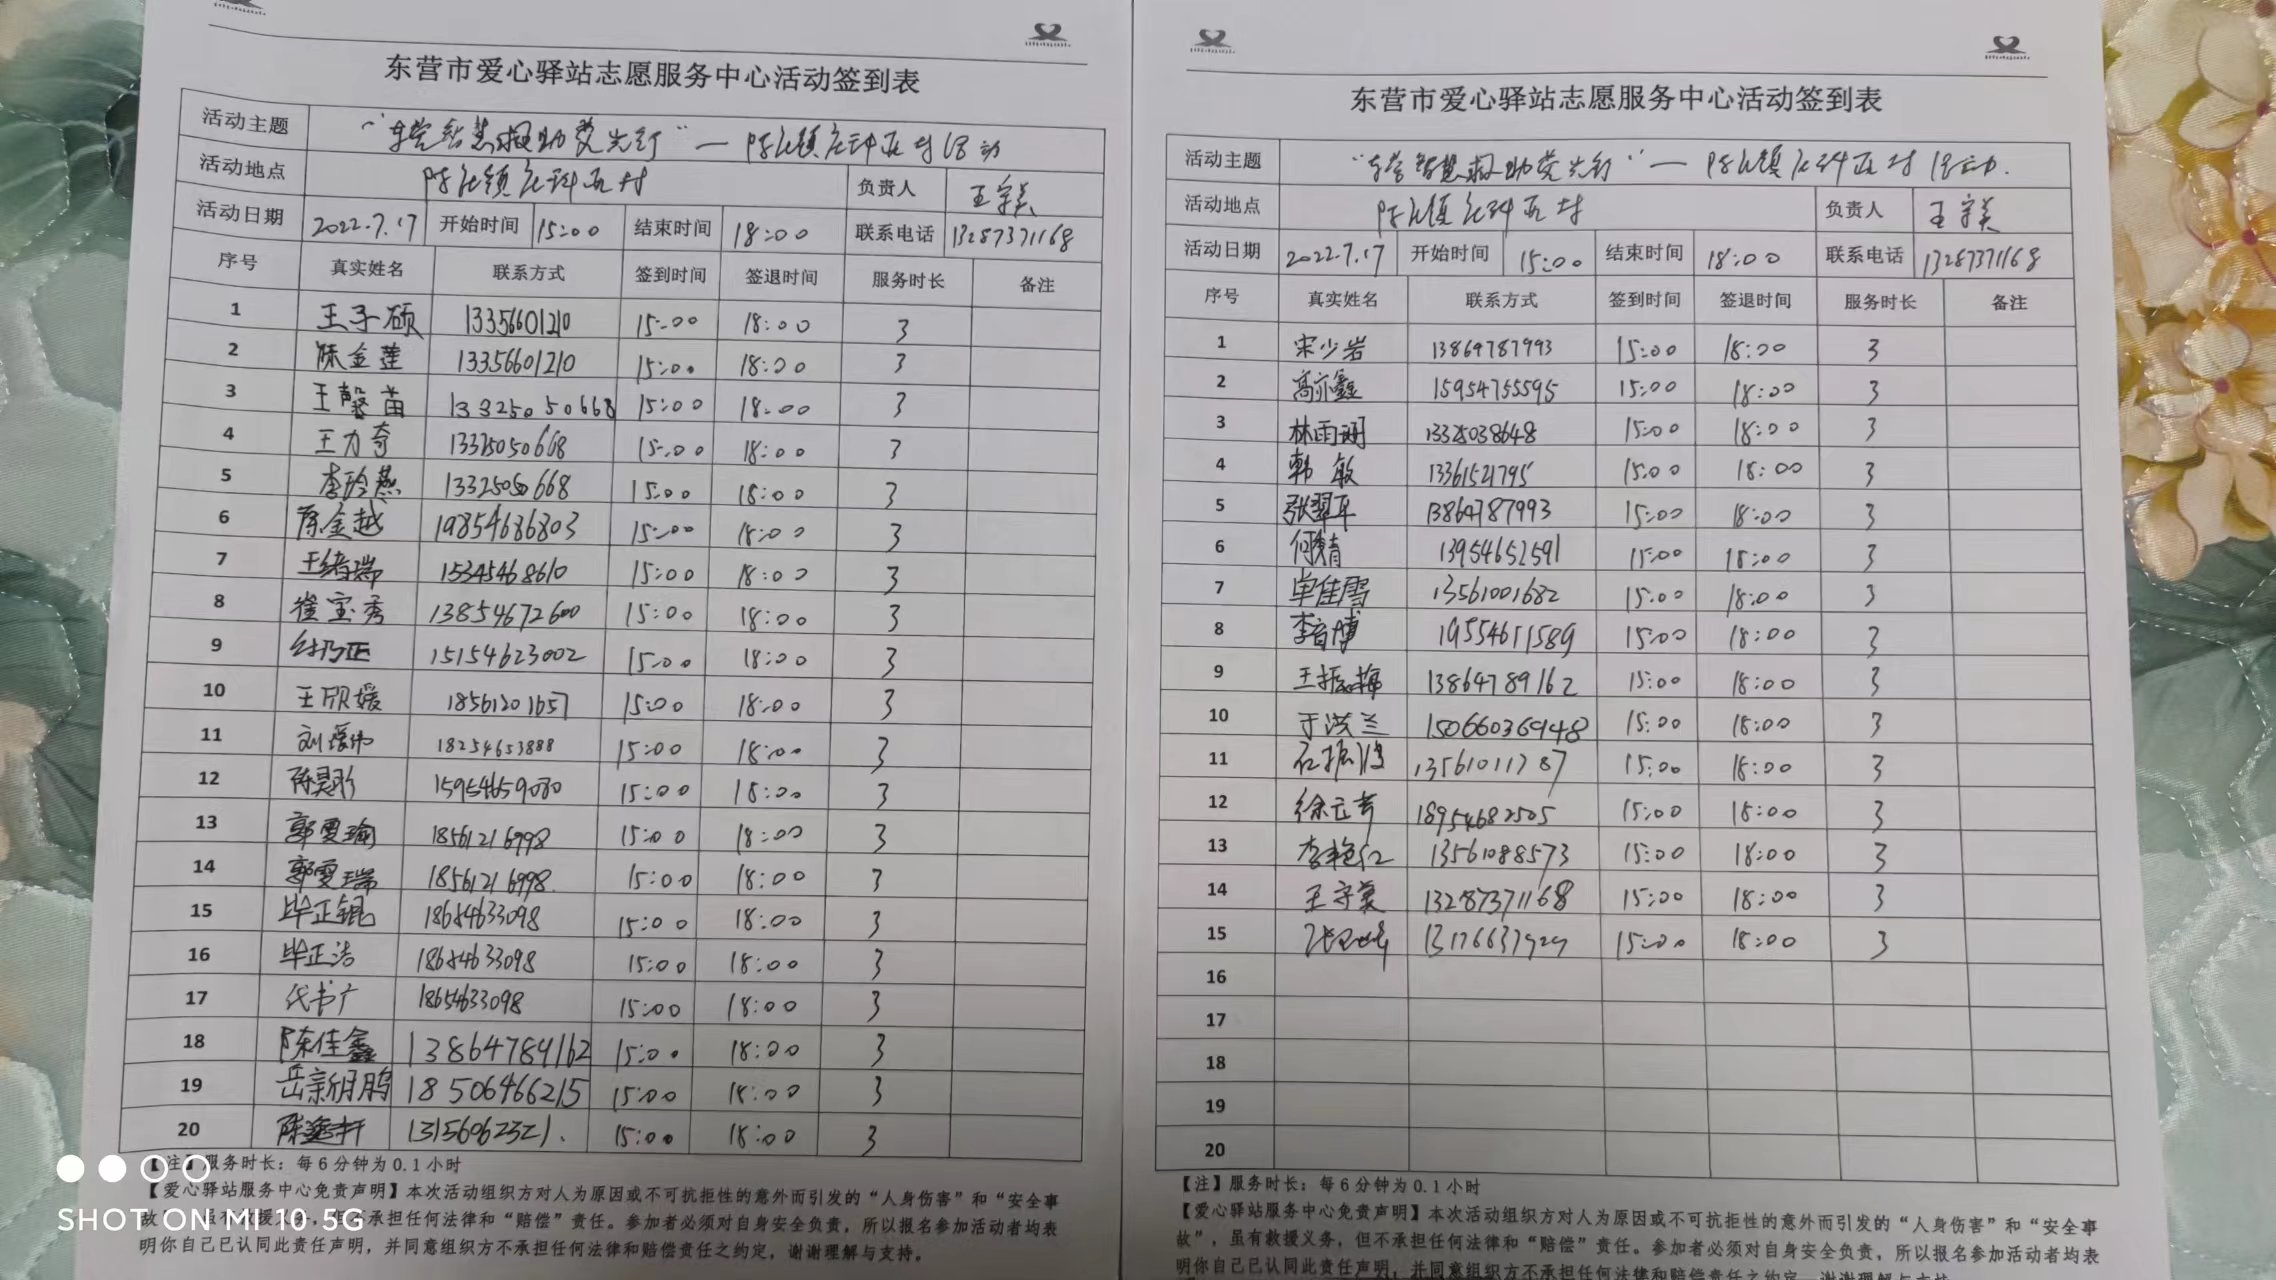 东营市爱心驿站志愿服务中心活动签到表
活动主题 “东营智慧救助党先行”—陈庄镇庄科五村活动
活动地点 陈庄镇庄科五村 负责人 王守美
活动日期 2022.7.17 开始时间 15:00 结束时间 18:00 联系电话 13287371168
序号 真实姓名 联系方式 签到时间 签退时间 服务时长 备注
1 王子硕 13356601210 15:00 18:00 3
2 陈金莲 13356601210 15:00 18:00 3
3 王馨苗 13325050668 15:00 18:00 3
4 王力奇 13325050668 15:00 18:00 3
5 李玲燕 13325050668 15:00 18:00 3
6 陈金越 19854686803 15:00 18:00 3
7 王绪瑞 15345468610 15:00 18:00 3
8 崔宝秀 13854672600 15:00 18:00 3
9 15154623002 15:00 18:00 3
10 王欣媛 18561201657 15:00 18:00 3
11 18254653888 15:00 18:00 3
12 陈昊彤 15954659080 15:00 18:00 3
13 郭雯瑜 18561216998 15:00 18:00 3
14 郭雯瑞 18561216998. 15:00 18:00 3
15 毕正锟 18654633098 15:00 18:00 3
16 毕正浩 18654633098 15:00 18:00 3
17 代书广 18654633098 15:00 18:00 3
18 陈佳鑫 13864789162 15:00 18:00 3
19 岳宗鹏 18506466215 15:00 18:00 3
20 陈鑫轩 13156062321. 15:00 18:00 3
【注】服务时长：每6分钟为0.1小时
【爱心驿站服务中心免责声明】本次活动组织方对人为原因或不可抗拒性的意外而引发的“人身伤害”和“安全事
故”，虽有救援义务，但不承担任何法律和“赔偿”责任。参加者必须对自身安全负责，所以报名参加活动者均表
明你自己已认同此责任声明，并同意组织方不承担任何法律和赔偿责任之约定，谢谢理解与支持。
SHOT ON MI 10 5G
东营市爱心驿站志愿服务中心活动签到表
活动主题 “东营智慧救助党先行”—陈庄镇庄科五村活动.
活动地点 陈庄镇庄科五村 负责人 王守美
活动日期 2022.7.17 开始时间 15:00 结束时间 18:00 联系电话 13287371168
序号 真实姓名 联系方式 签到时间 签退时间 服务时长 备注
1 宋少岩 13864787993 15:00 18:00 3
2 高亦鑫 15954755595 15:00 18:00 3
3 林雨玥 13325038648 15:00 18:00 3
4 韩敏 13361521795 15:00 18:00 3
5 张翠平 13864787993 15:00 18:00 3
6 何婧 13954652591 15:00 18:00 3
7 单佳雪 13561001682 15:00 18:00 3
8 李音博 19554611589 15:00 18:00 3
9 王振梅 13864789162 15:00 18:00 3
10 于洪兰 15066036948 15:00 18:00 3
11 石振波 13561011787 15:00 18:00 3
12 徐云芳 18954682505 15:00 18:00 3
13 李艳红 13561088573 15:00 18:00 3
14 王守美 13287371168 15:00 18:00 3
15 13176637929 15:00 18:00 3
16
17
18
19
20
【注】服务时长：每6分钟为0.1小时
【爱心驿站服务中心免责声明】本次活动组织方对人为原因或不可抗拒性的意外而引发的“人身伤害”和“安全事
故”，虽有救援义务，但不承担任何法律和“赔偿”责任。参加者必须对自身安全负责，所以报名参加活动者均表
明你自己已认同此责任声明，并同意组织方不承担任何法律和赔偿责任之约定，谢谢理解与支持